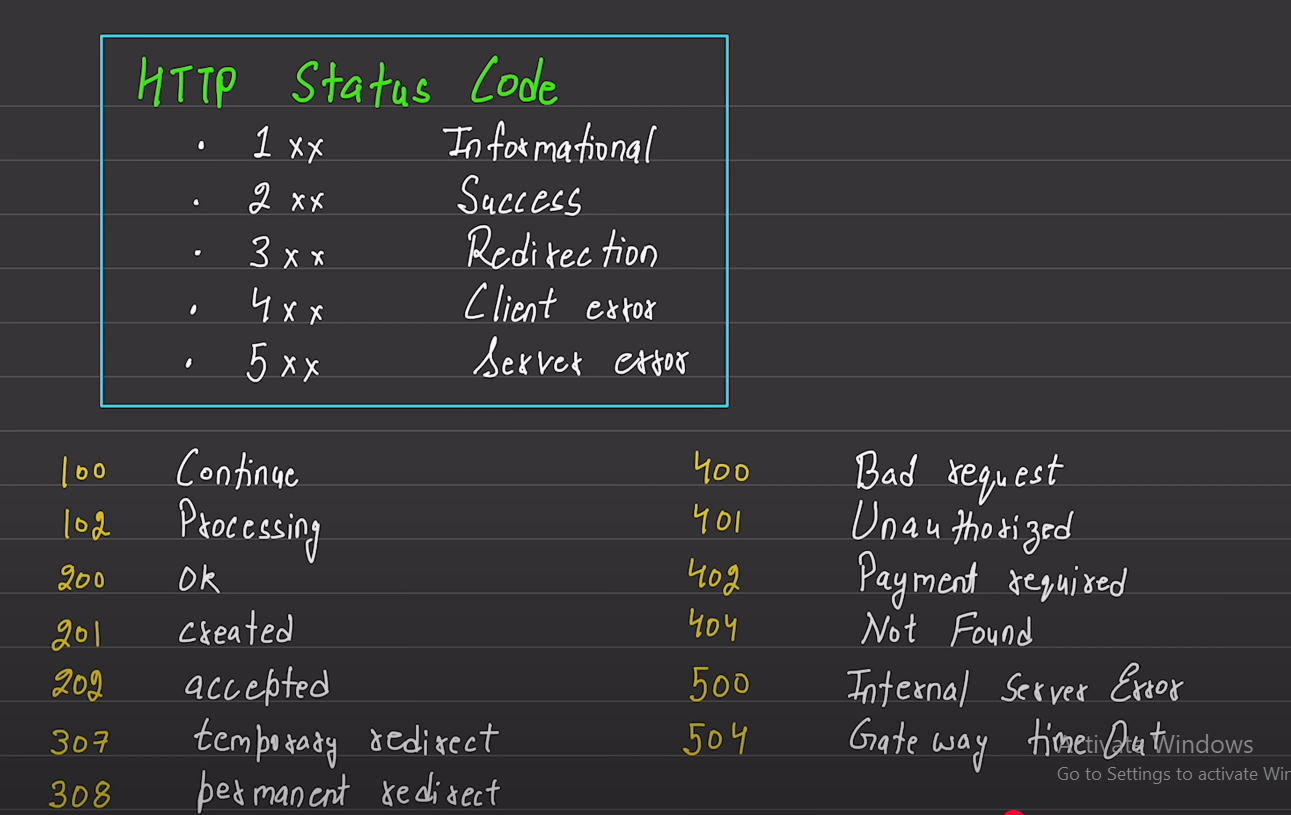 HTTP Status Code
• 1xx Informational
• 2xx Success
• 3xx Redirection
• 4xx Client error
• 5xx Server error
100 Continue
102 Processing
200 Ok
201 created
202 accepted
307 temporary redirect
308 permanent redirect
400 Bad request
401 Unauthorized
402 Payment required
404 Not Found
500 Internal Server Error
504 Gate way time Out
Activate Windows
Go to Settings to activate Win